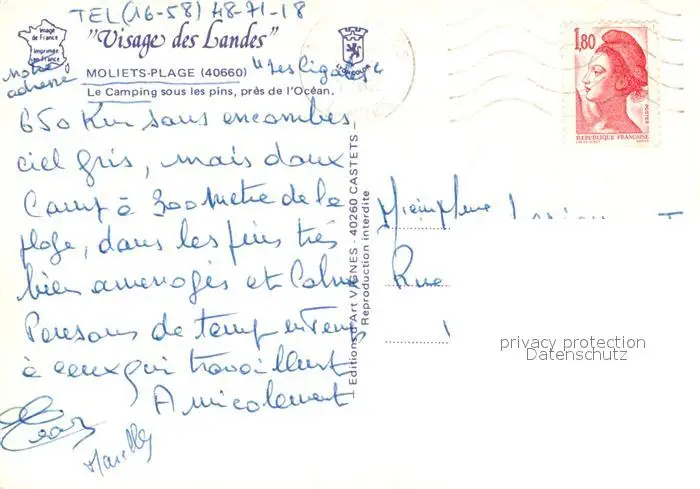 TEL (16-58) 48-71-18
Image
de France
Imprimée
en France
"Visage des Landes"
notre
adresse
MOLIETS-PLAGE (40660) "Les Cigales"
Le Camping sous les pins, près de l'Océan.
650 Km sans encombres,
ciel gris, mais doux
Camp à 300 Metre de la
plage, dans les pins très
bien amenagés et Calme
Pensons de temp en Temps
à ceux qui travaillent
Amicalement
Marilly
Editions d'Art VAGNES - 40260 CASTETS -
Reproduction interdite
1,80
POSTES
REPUBLIQUE FRANÇAISE
Rue
privacy protection
Datenschutz